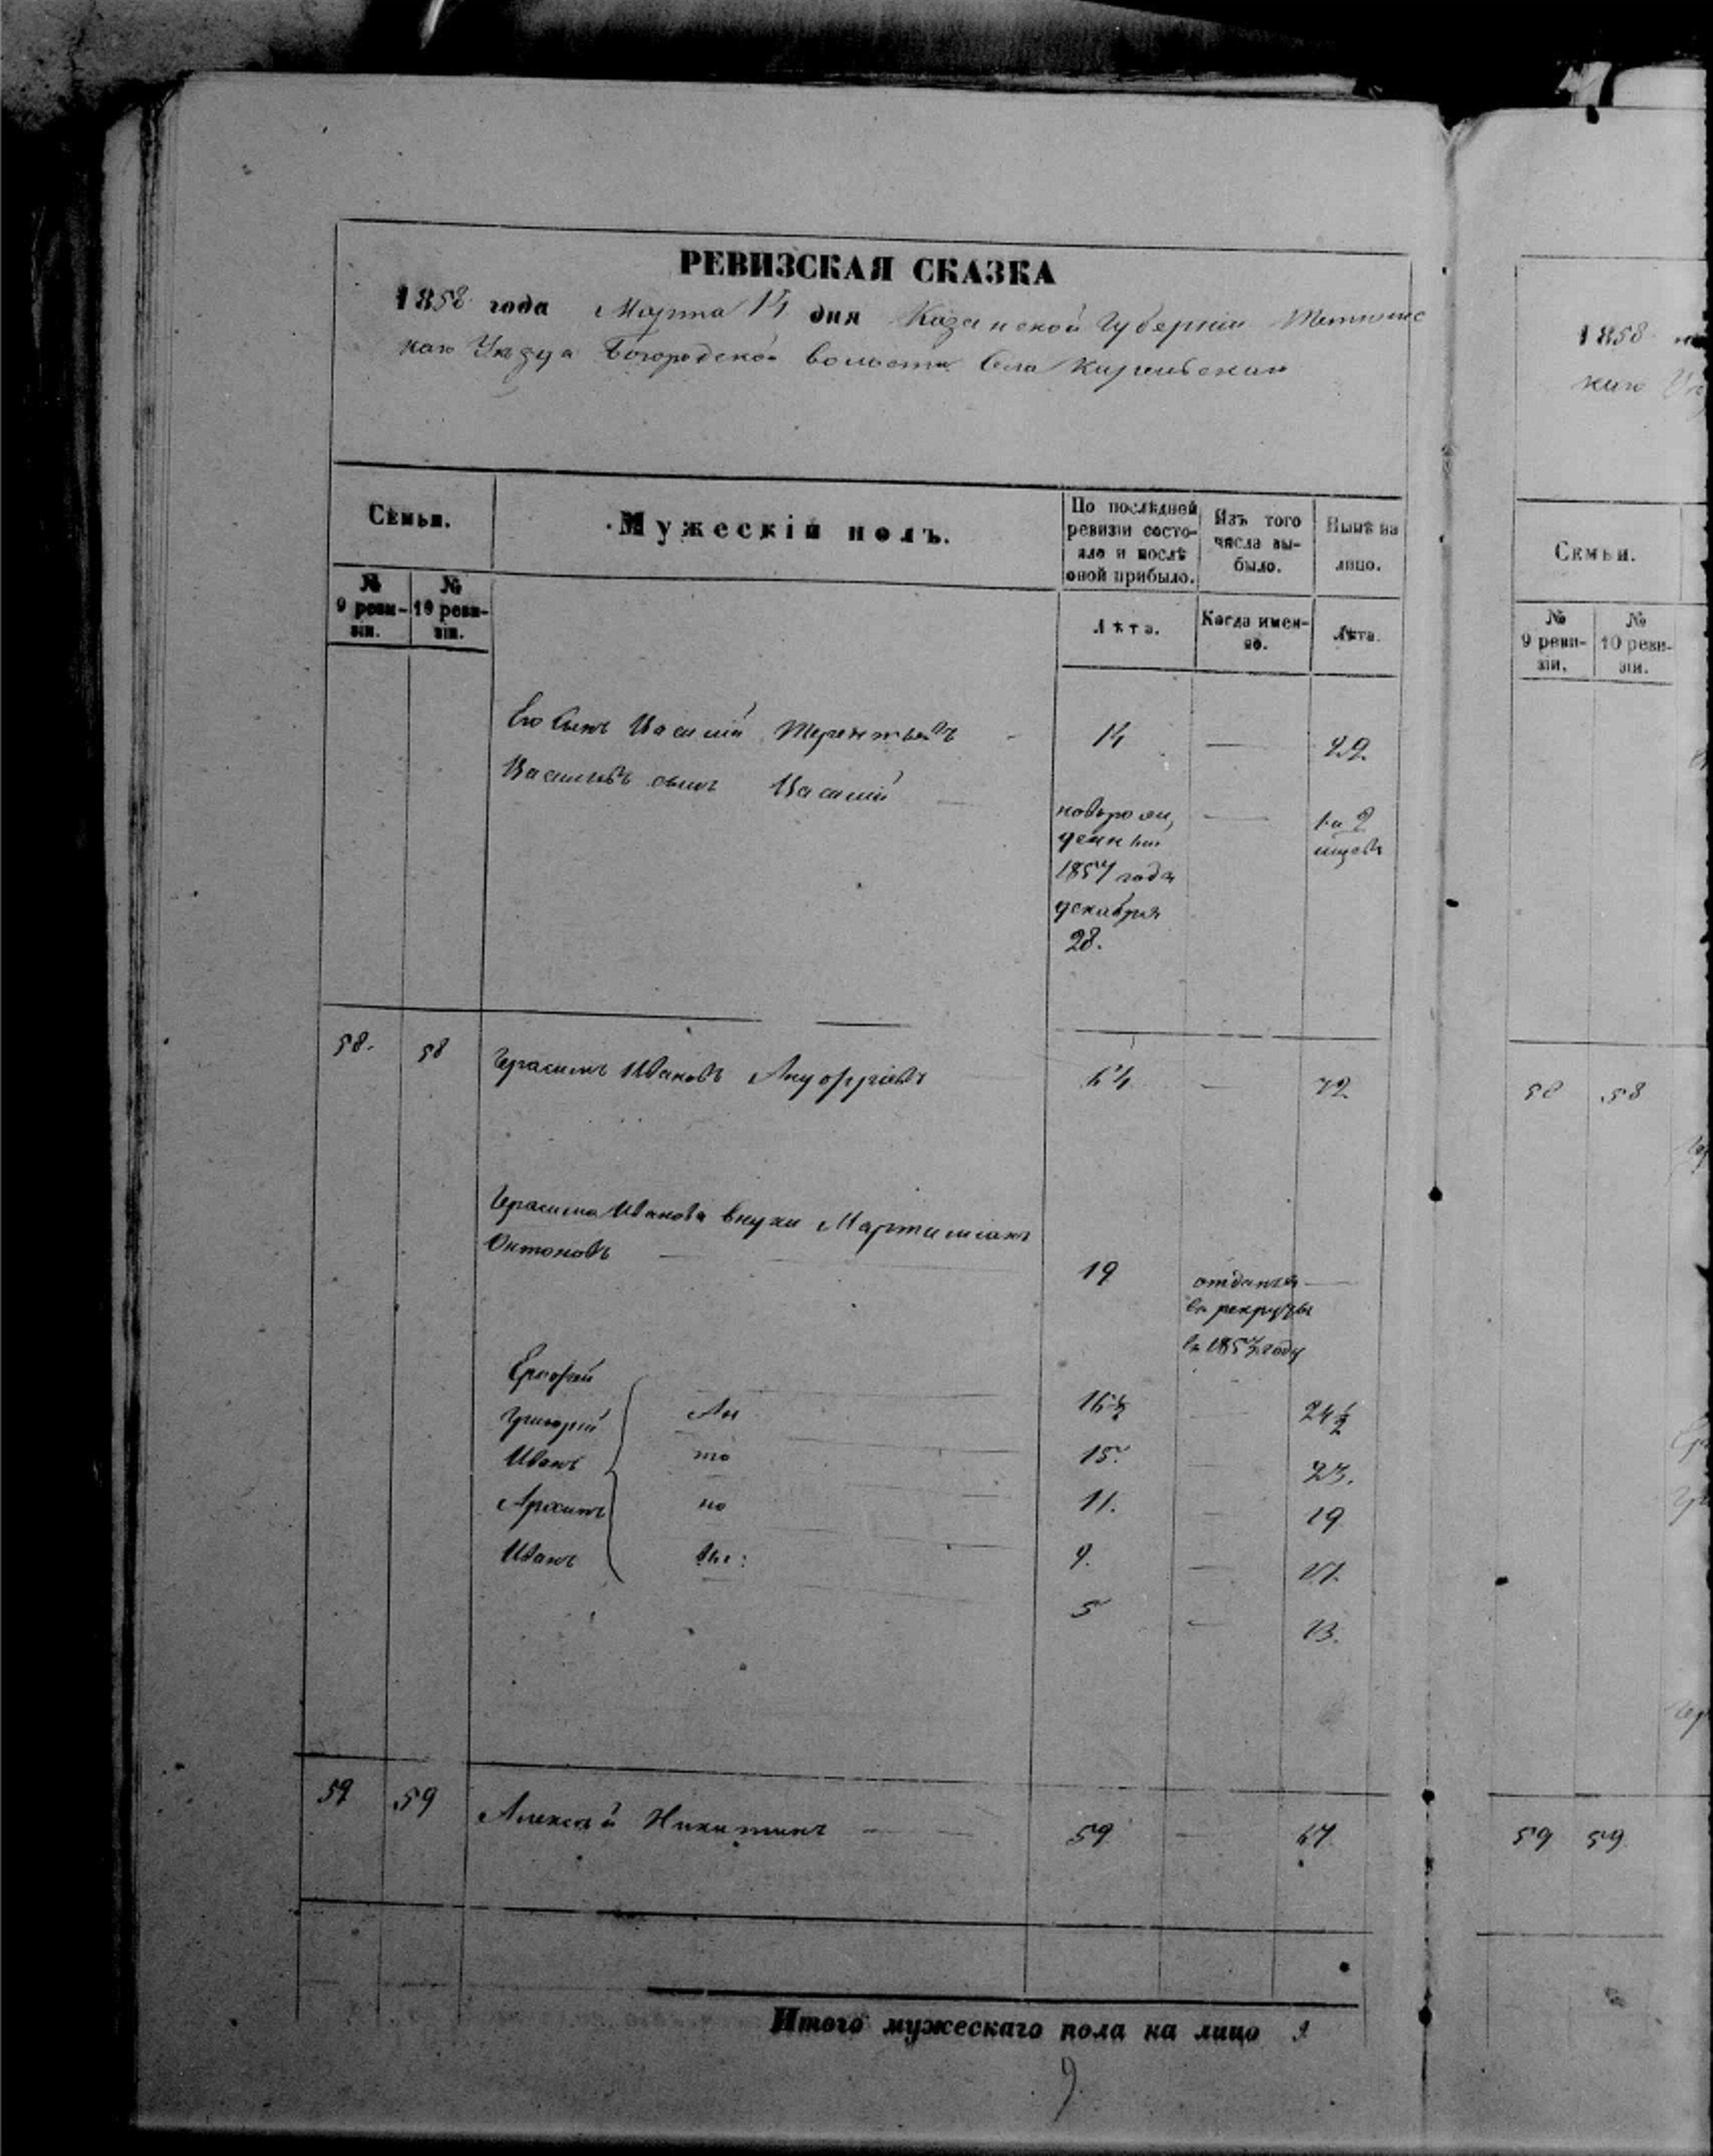 РЕВИЗСКАЯ СКАЗКА
1858 года Марта 14 дня Казанской Губерніи Тетюшс
каго Уѣзда Богородской волости Села
Семьи.
Мужескій полъ.
По послѣдней ревизіи состо-
яло и послѣ
оной прибыло.
Изъ того
числа вы-
было.
Нынѣ на
лицо.
№
9 реви-
зіи.
№
10 реви-
зіи.
Лѣта.
Когда имен-
но.
Лѣта.
Его Сынъ Василій Терентьевъ 14 — 22
Васильевъ сынъ Василій — новорож
денный
1857 года
декабря
28.
—
58. 58 Герасимъ Ивановъ Ануфріевъ 64 — 72
Герасима Иванова внуки Мартиміанъ
Онтоновъ — 19 отданъ
въ рекруты
въ 1854 году
Ерофей 16½ — 24½
Григорій Ан 15. — 23.
Иванъ то 11. — 19
Архипъ но 9. — 17.
Иванъ вы: 5 — 13.
59 59 Алексѣй Никитинъ — 59 — 67.
Итого мужескаго пола на лицо 9
9
1858
каго
Семьи.
№
9 реви-
зіи.
№
10 реви-
зіи.
58 58
59 59